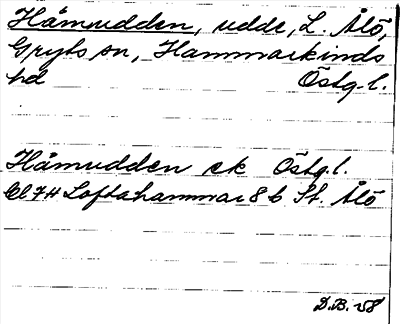 Håmudden, udde, L. Ålö,
Gryts sn, Hammarkinds
hd Östg.l.
Håmudden ek Östg.l.
Bl 7H Loftahammar 8 b St. Ålö
D.B. -58